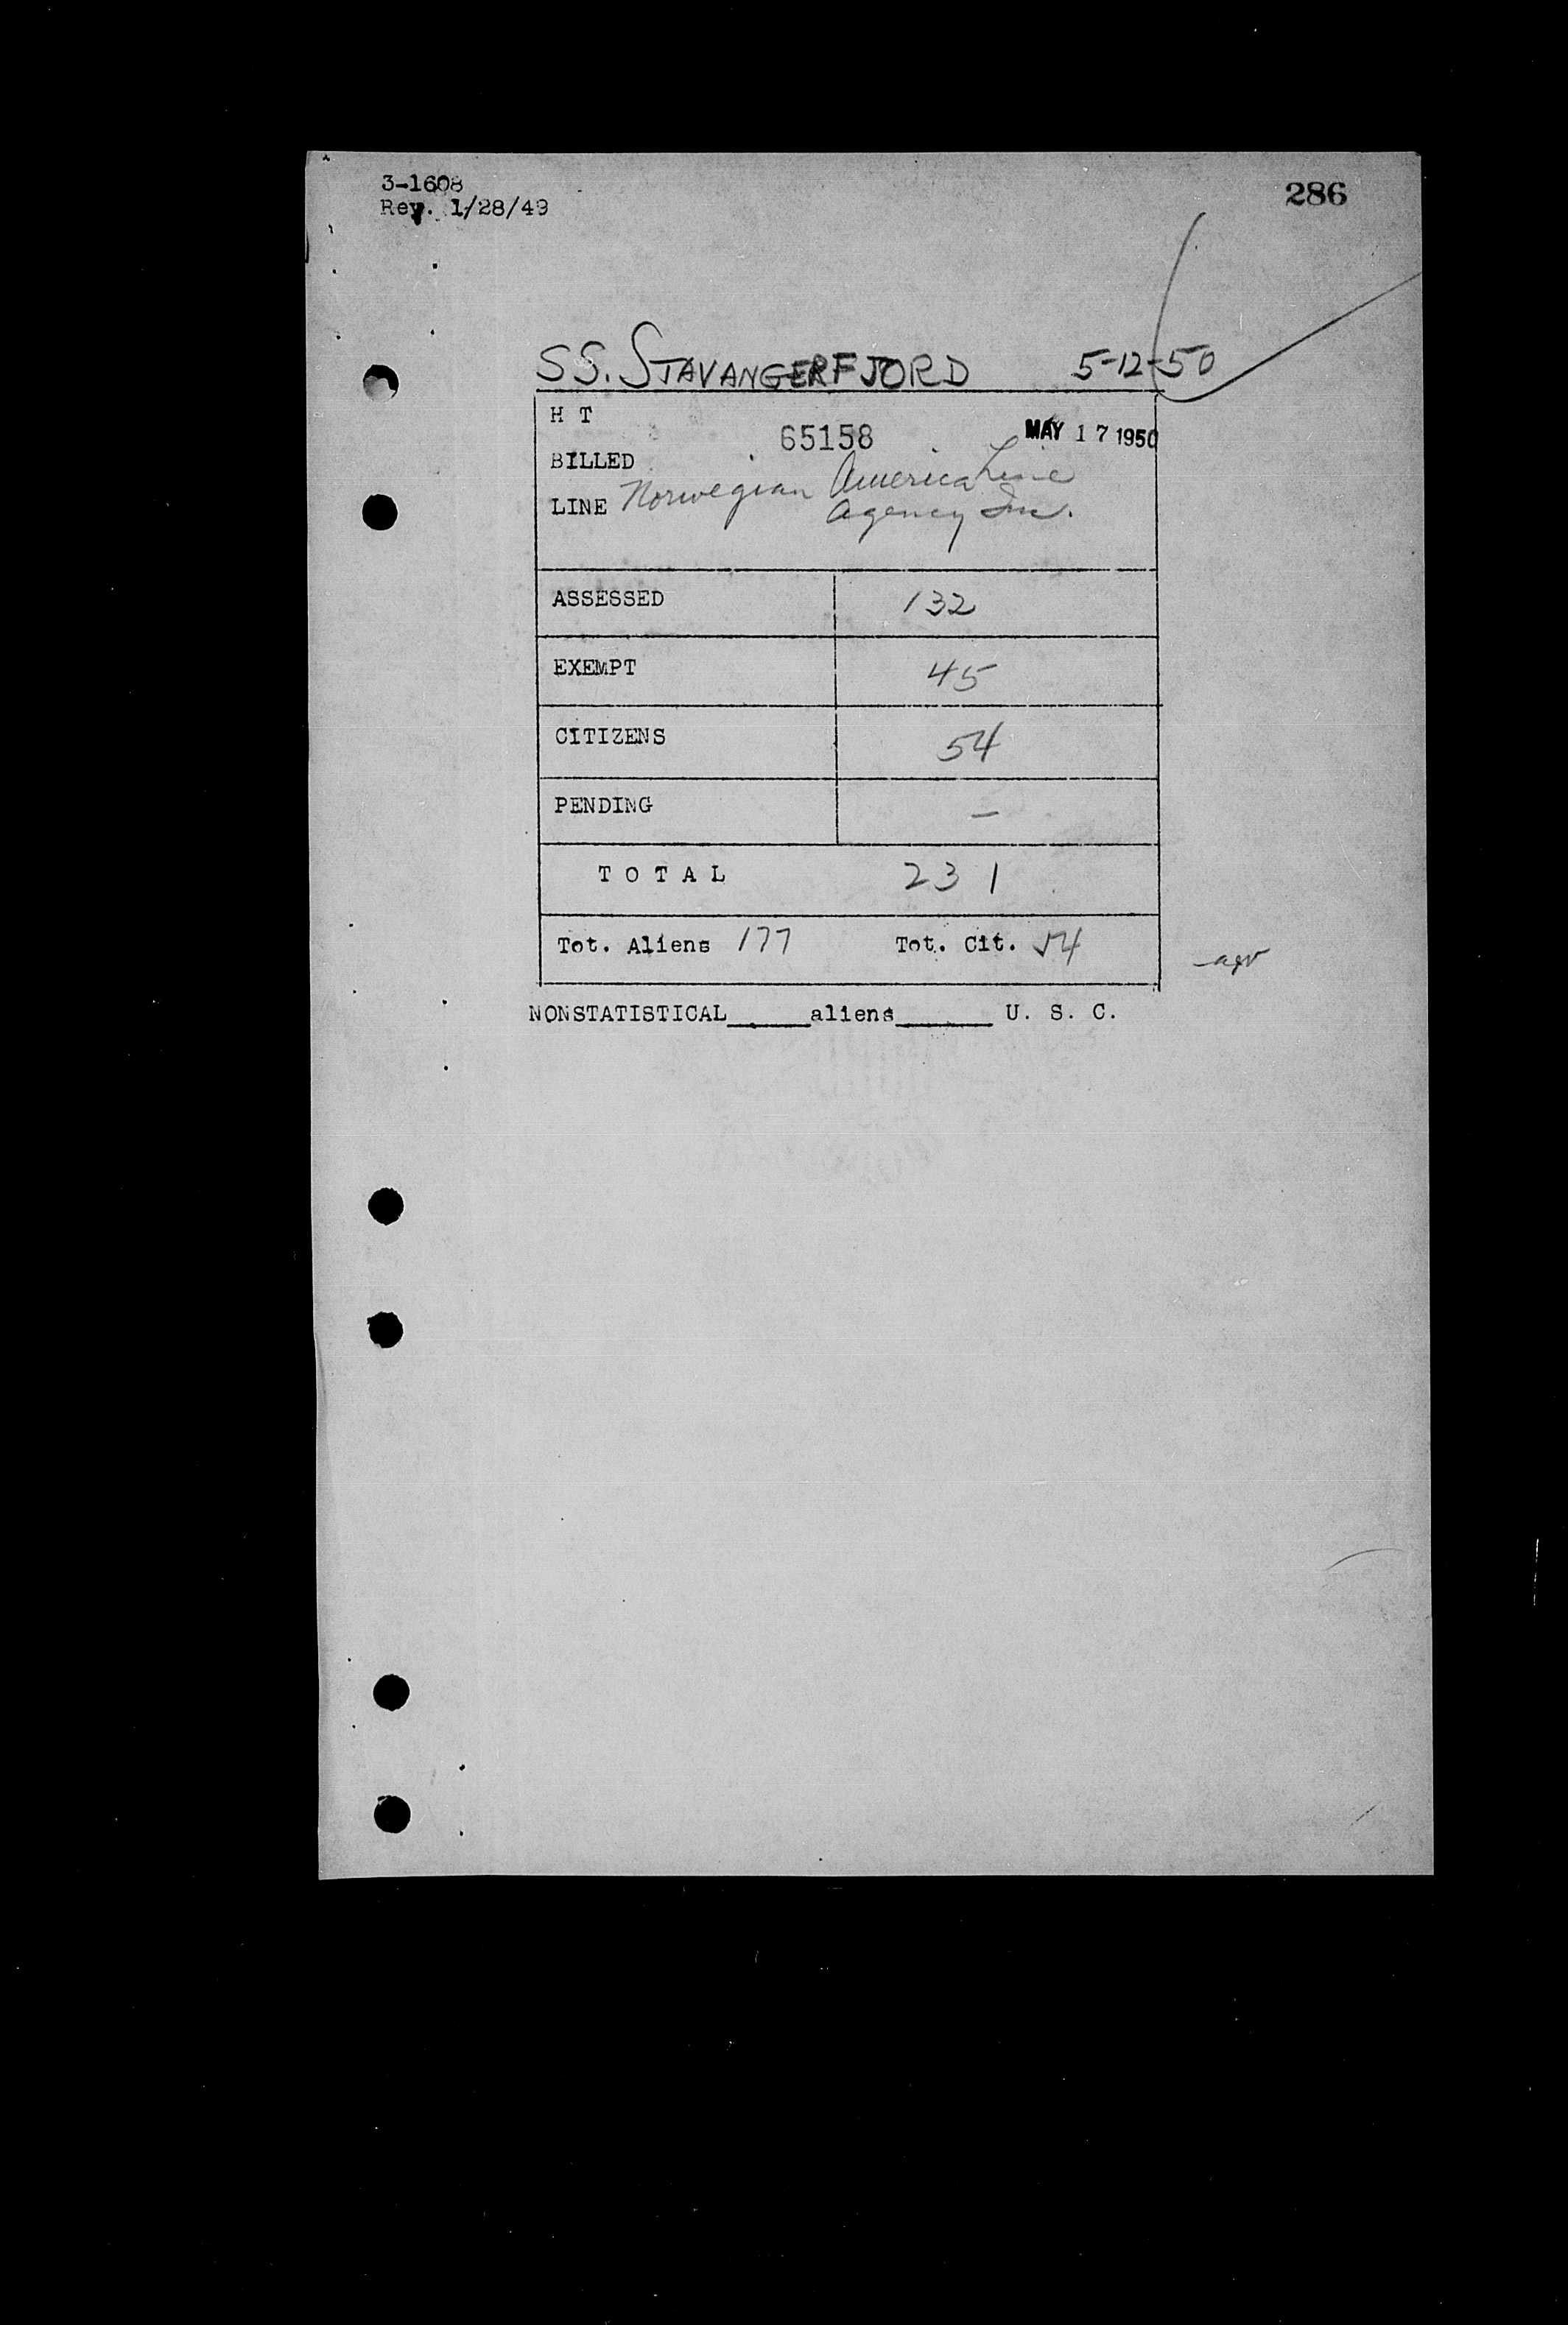 3-1608
Rev. 1/28/49
286
SS. STAVANGERFJORD 5-12-50
H T
65158 MAY 17 1950
BILLED
LINE Norwegian America Line
Agency Inc.
ASSESSED 132
EXEMPT 45
CITIZENS 54
PENDING —
TOTAL 231
Tot. Aliens 177 Tot. Cit. 54
NONSTATISTICAL_____aliens______ U. S. C.